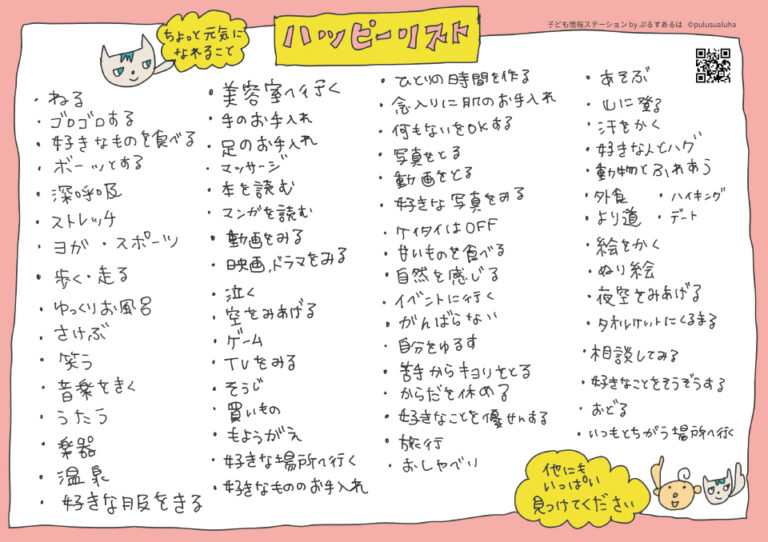 子ども情報ステーション by ぷるすあるは ©pulusualuha
ちょっと元気に
なれること
ハッピーリスト
・ねる
・ゴロゴロする
・好きなものを食べる
・ボーッとする
・深呼吸
・ストレッチ
・ヨガ ・スポーツ
・歩く・走る
・ゆっくりお風呂
・さけぶ
・笑う
・音楽をきく
・うたう
・楽器
・温泉
・好きな服をきる
・美容室へ行く
・手のお手入れ
・足のお手入れ
・マッサージ
・本を読む
・マンガを読む
・動画をみる
・映画,ドラマをみる
・泣く
・空をみあげる
・ゲーム
・TVをみる
・そうじ
・買いもの
・もようがえ
・好きな場所へ行く
・好きなもののお手入れ
・ひとりの時間を作る
・念入りに肌のお手入れ
・何もないをOKする
・写真をとる
・動画をとる
・好きな写真をみる
・ケイタイはOFF
・甘いものを食べる
・自然を感じる
・イベントに行く
・がんばらない
・自分をゆるす
・苦手からキョリをとる
・からだを休める
・好きなことを優せんする
・旅行
・おしゃべり
・あそぶ
・山に登る
・汗をかく
・好きな人とハグ
・動物とふれあう
・外食 ・ハイキング
・より道 ・デート
・絵をかく
・ぬり絵
・夜空をみあげる
・タオルケットにくるまる
・相談してみる
・好きなことをそうぞうする
・おどる
・いつもとちがう場所へ行く
他にも
いっぱい
見つけてください